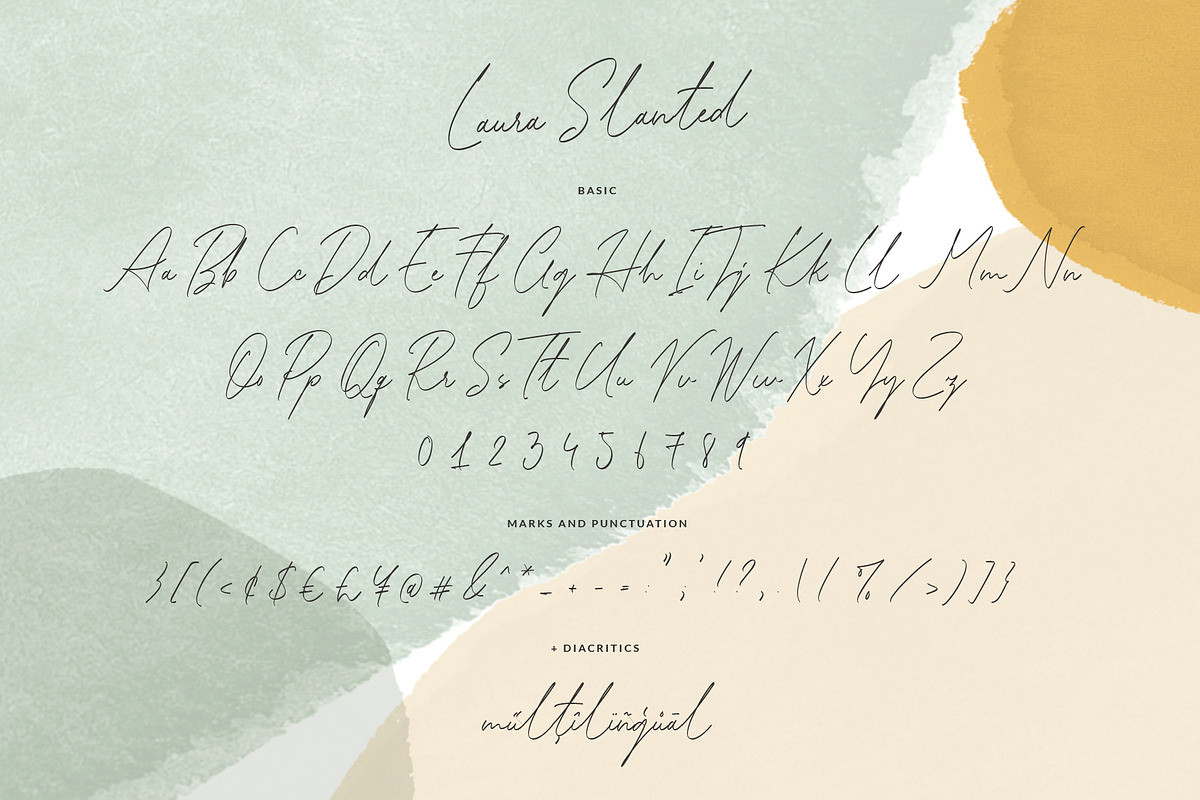 Laura Slanted
BASIC
Aa Bb Cc Dd Ee Ff Gg Hh Ii Jj Kk Ll Mm Nn
Oo Pp Qq Rr Ss Tt Uu Vv Ww Xx Yy Zz
0 1 2 3 4 5 6 7 8 9
MARKS AND PUNCTUATION
} [ ( < ¢ $ € £ ¥ @ # & ^ * _ + - = : " ; ' ! ? , . \ | % / > ) ] }
+ DIACRITICS
műlţîlïñģůāl